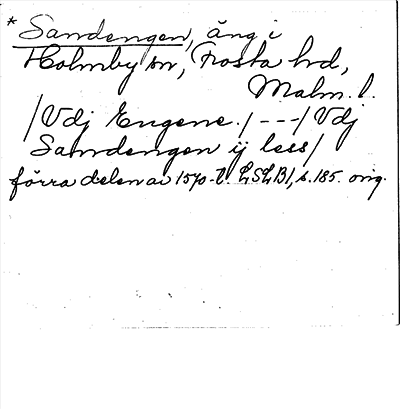 * Sandengen, äng i
Holmby sn, Frosta hd,
Malm. l.
/Vdj Engene./ - - - /Vdj
Sandengen ij less/
förra delen av 1570-t. LSLB1, s. 185. orig.